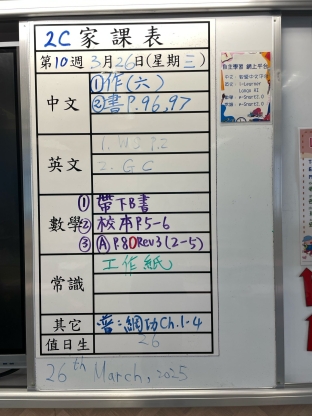 2C 家課表
第10週 3月26日(星期三)
中文
①作(六)
②書P.96,97
英文
1. WS P.2
2. GC
數學
① 帶下B書
② 校本P5-6
③ (A) P.80 Rev3 (2-5)
常識
工作紙
其它
普:網功Ch.1-4
值日生
26
26th March, 2025
自主學習 網上平台